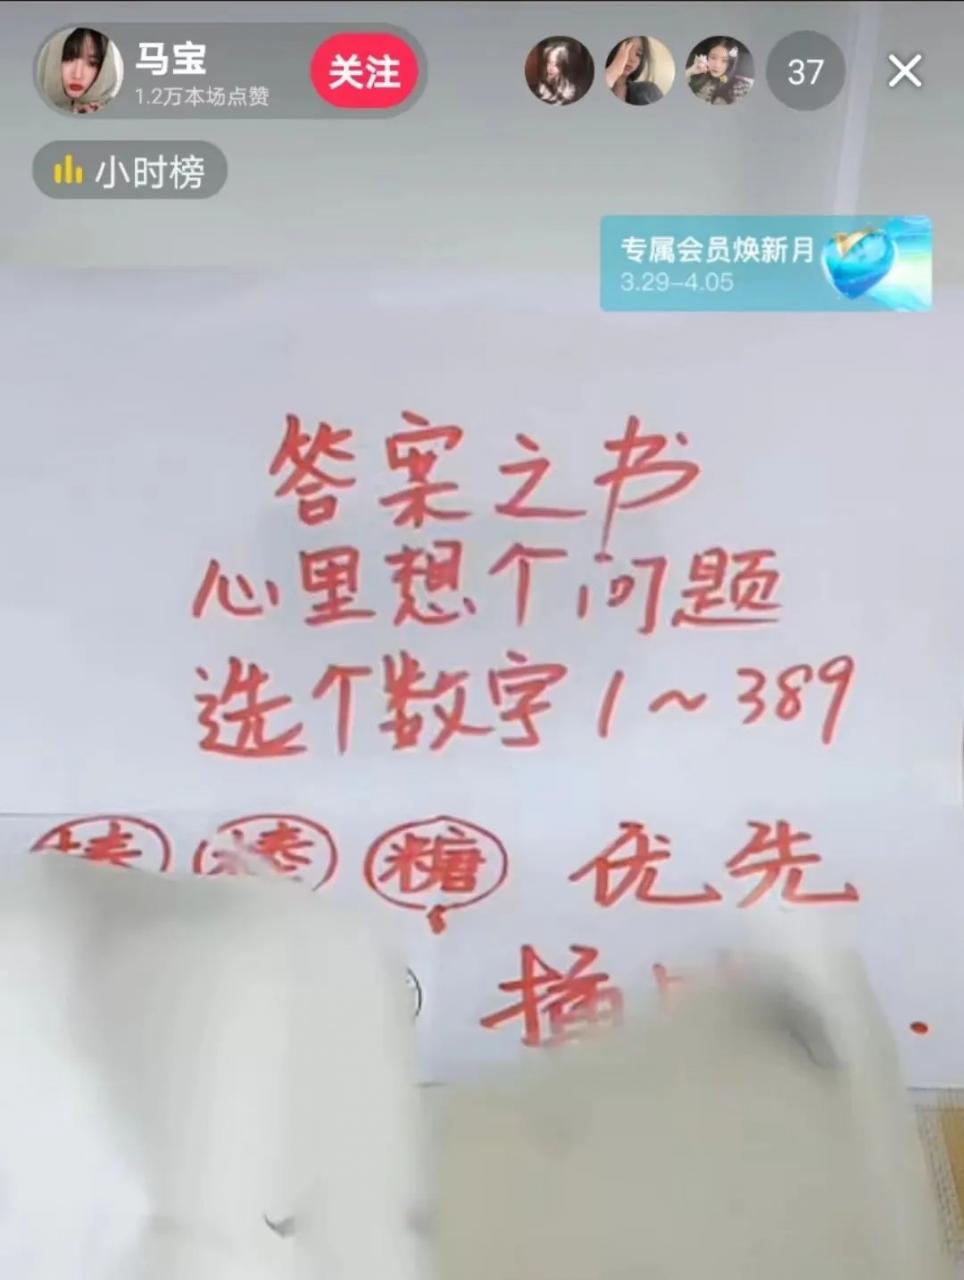 马宝
1.2万本场点赞
关注
37
小时榜
专属会员焕新月
3.29-4.05
答案之书
心里想个问题
选个数字1~389
糖 优先
插